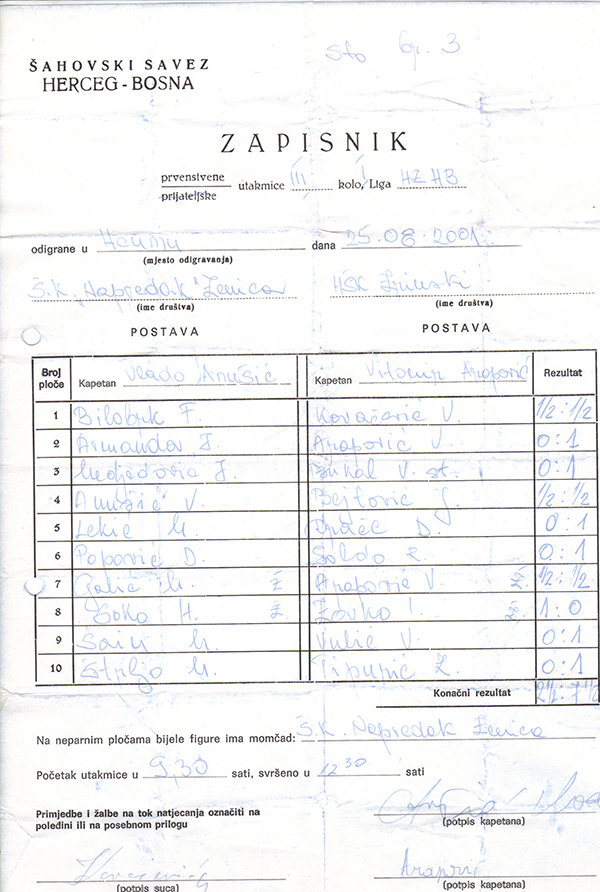 Sto Gr. 3
ŠAHOVSKI SAVEZ
HERCEG - BOSNA
ZAPISNIK
prvenstvene
prijateljske
utakmice III kolo, I Liga HZ HB
odigrane u Neumu dana 25.08.2001.
(mjesto odigravanja)
Š.K. Napredak Zenica HŠK Zrinski
(ime društva) (ime društva)
POSTAVA POSTAVA
Broj ploče Kapetan Vlado Anušić Kapetan Vitomir Arapović Rezultat
1 Bilobrk F. Kovačević V. 1/2 : 1/2
2 Armanda J. Arapović V. 0:1
3 Medjedović J. V. st. 0:1
4 Anušić V. Bejtović J. 1/2 : 1/2
5 Lekić M. D. 0:1
6 Popović D. Soldo Z. 0:1
7 Galić M. Ž Arapović V. 1/2 : 1/2
8 Zoko H. Ž. Zovko I. 1:0
9 Sain M. Vulić V. 0:1
10 M. Tipurić Z. 0:1
Konačni rezultat 2 1/2 : 7 1/2
Na neparnim pločama bijele figure ima momčad: Š.K. Napredak Zenica
Početak utakmice u 9,30 sati, svršeno u 12 30 sati
Primjedbe i žalbe na tok natjecanja označiti na
poleđini ili na posebnom prilogu
(potpis kapetana)
Arapović
(potpis suca) (potpis kapetana)